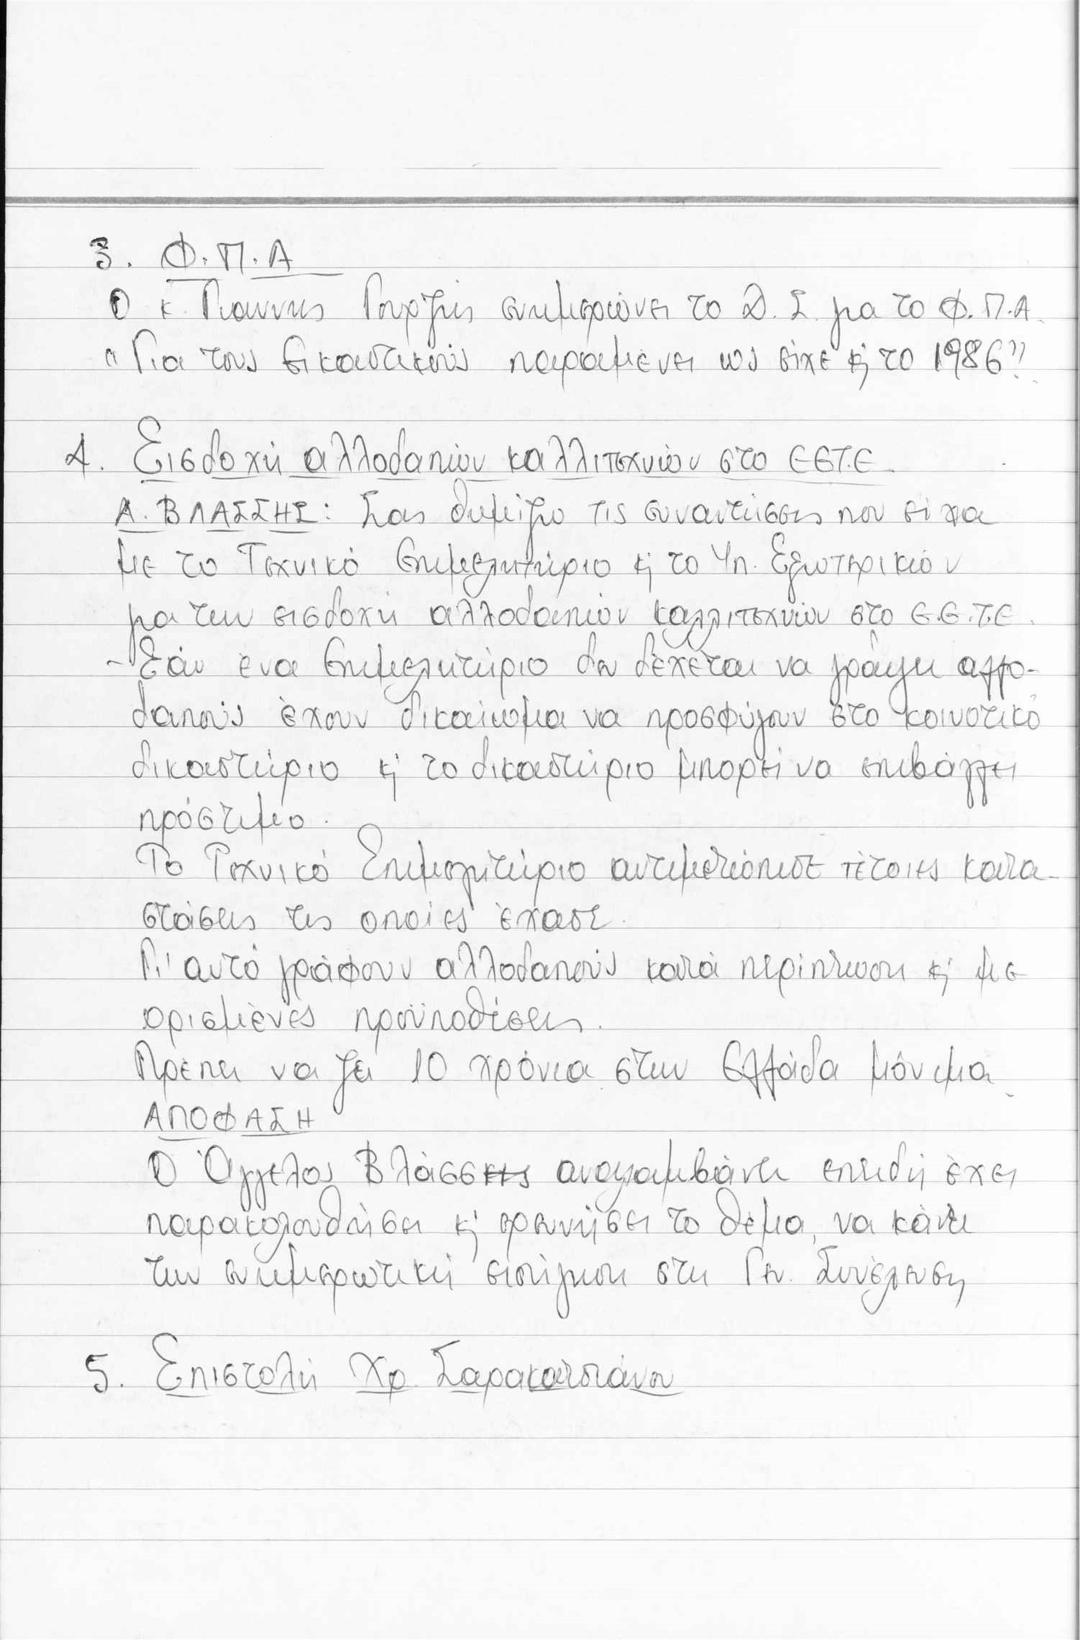 3. Φ.Π.Α
Ο κ. Γιάννης Γουρζής ενημερώνει το Δ.Σ. για το Φ.Π.Α.
"Για τους εικαστικούς παραμένει ως είχε κ' το 1986"
4. Εισδοχή αλλοδαπών καλλιτεχνών στο ΕΕΤΕ
Α. ΒΛΑΣΣΗΣ: Σας θυμίζω τις συναντήσεις που είχα
με το Τεχνικό Επιμελητήριο κ' το Υπ. Εξωτερικών
για την εισδοχή αλλοδαπών καλλιτεχνών στο Ε.Ε.Τ.Ε.
- Εάν ένα Επιμελητήριο δεν δέχεται να γράψει αλλο-
δαπούς έχουν δικαίωμα να προσφύγουν στο κοινοτικό
δικαστήριο κ' το δικαστήριο μπορεί να επιβάλλει
πρόστιμο.
Το Τεχνικό Επιμελητήριο αντιμετώπισε τέτοιες κατα-
στάσεις τις οποίες έχασε.
Γι' αυτό γράφουν αλλοδαπούς κατά περίπτωση κ' με
ορισμένες προϋποθέσεις.
Πρέπει να ζει 10 χρόνια στην Ελλάδα μόνιμα
ΑΠΟΦΑΣΗ
Ο Άγγελος Βλάσσης αναλαμβάνει επειδή έχει
παρακολουθήσει κ' ερευνήσει το θέμα, να κάνει
την ενημερωτική εισήγηση στη Γεν. Συνέλευση
5. Επιστολή Χρ. Σαρακατσιάνου